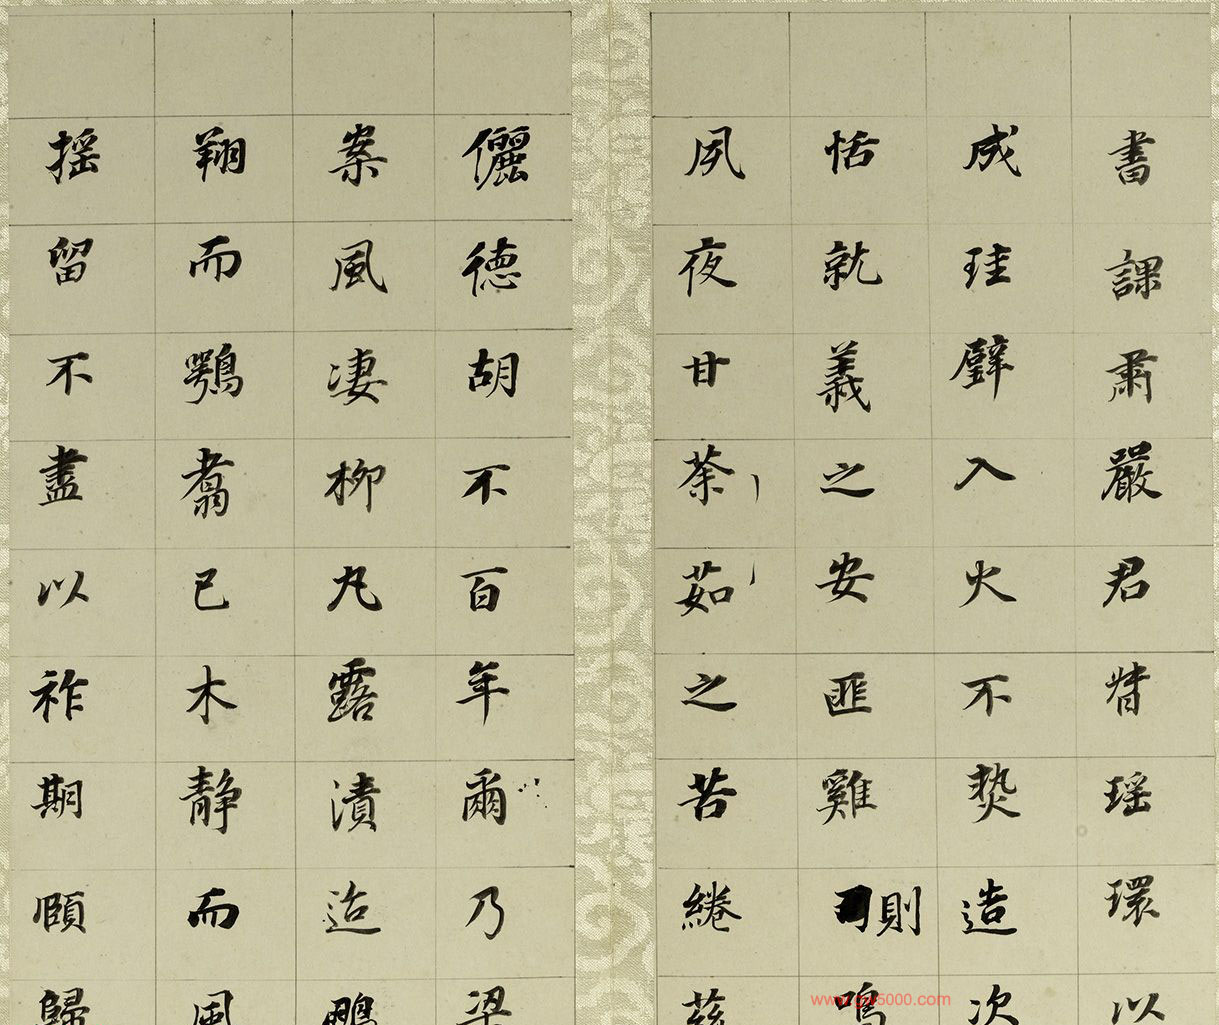 書課肅嚴君幷瑶環以
成珪璧入火不爇造次
恬就義之安匪雞則鳴
夙夜甘荼茹之苦綣茲
儷德胡不百年爾乃梁
案風凄柳丸露漬迨鵬
翔而鶚翥已木靜而風
搖留不盡以祚期頤歸
www.gw5000.com